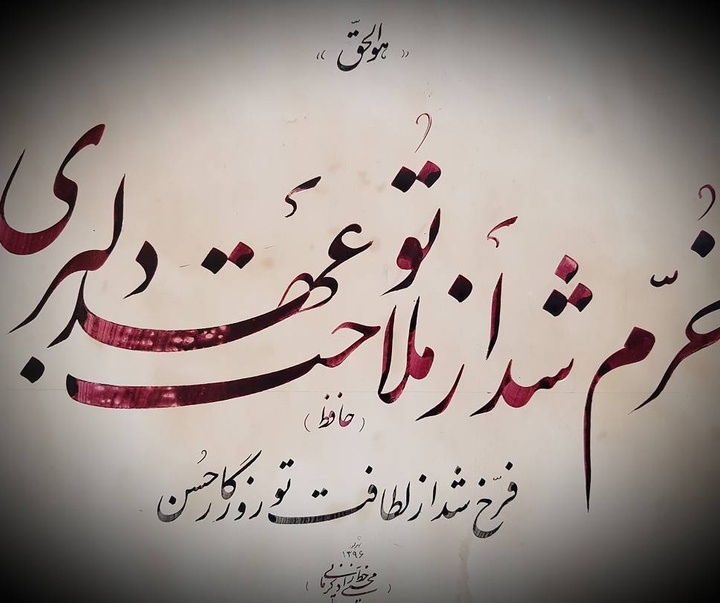 «هوالحقّ»
خُرّم شد از ملاحت تو عهد دلبری
(حافظ)
فرّخ شد از لطافت تو روزگار حُسن
۱۳۹۶